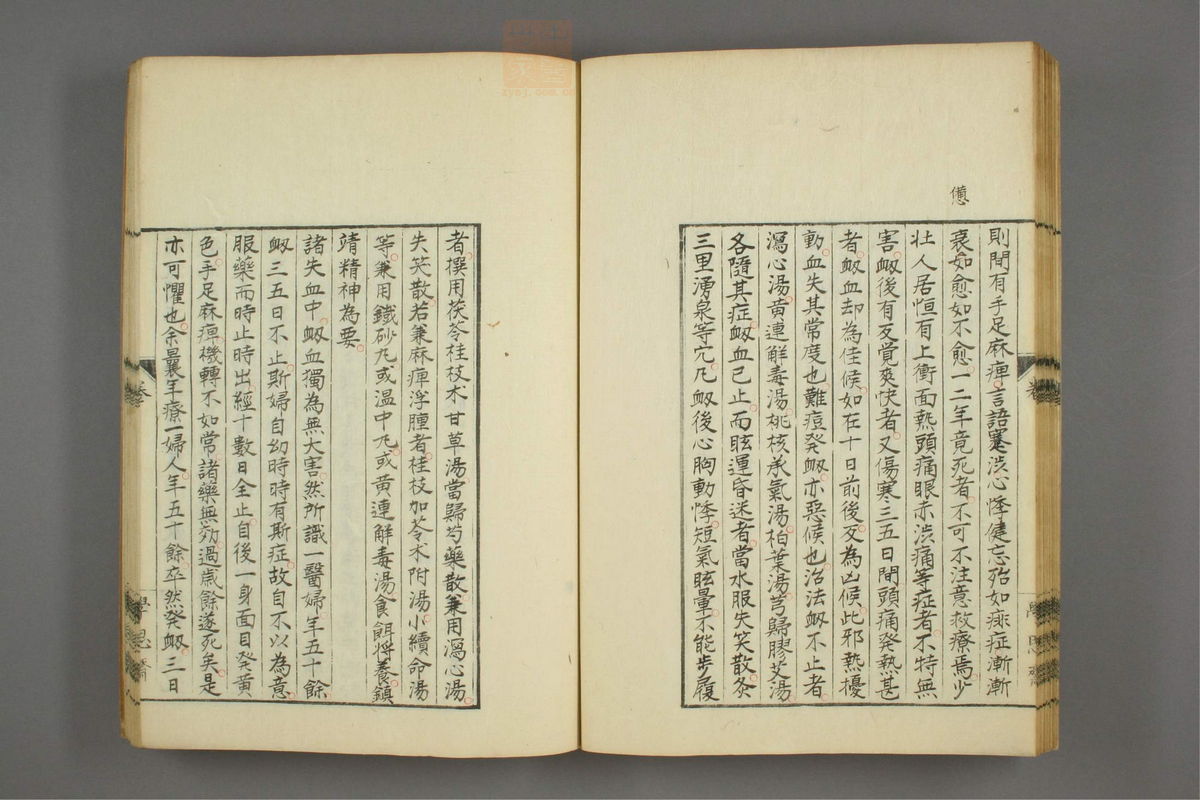 憊
則間有手足麻痺言語蹇澁心悸健忘殆如痱症漸漸
衰如愈如不愈一二年竟死者不可不注意救療焉少
壮人居恒有上衝面熱頭痛眼赤渋痛等症者不特無
害衂後有反覺爽快者又傷寒三五日間頭痛発熱甚
者衂血却為佳候如在十日前後反為凶候此邪熱擾
動血失其常度也難痘発衂亦惡候也治法衂不止者
瀉心湯黄連解毒湯桃核承氣湯柏葉湯芎歸膠艾湯
各隨其症衂血已止而眩運昏迷者當水服失笑散灸
三里湧泉等穴凡衂後心胸動悸短氣眩暈不能步履
者撰用茯苓桂枝朮甘草湯當歸芍藥散兼用瀉心湯
失笑散若兼麻痺浮腫者桂枝加苓朮附湯小續命湯
等兼用鐵砂丸或温中丸或黄連解毒湯食餌將養鎮
靖精神為要
諸失血中衂血獨為無大害然所識一醫婦年五十餘
衂三五日不止斯婦自幼時時有斯症故自不以為意
服藥而時止時出經十數日全止自後一身面目発黄
色手足麻痺機轉不如常諸藥無効過歳餘遂死矣是
亦可懼也余曩年療一婦人年五十餘卒然発衂三日
巻
學思齋